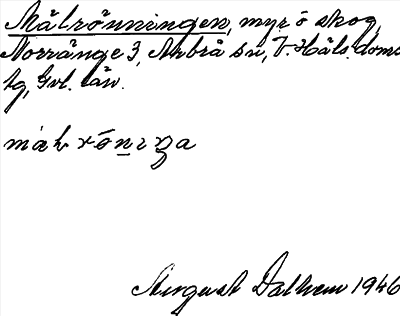 Målrönningen, myr o skog,
Norrånge 3, Arbrå sn, V. Häls. doms
tg, Gvl. län.
August Dalhem 1946